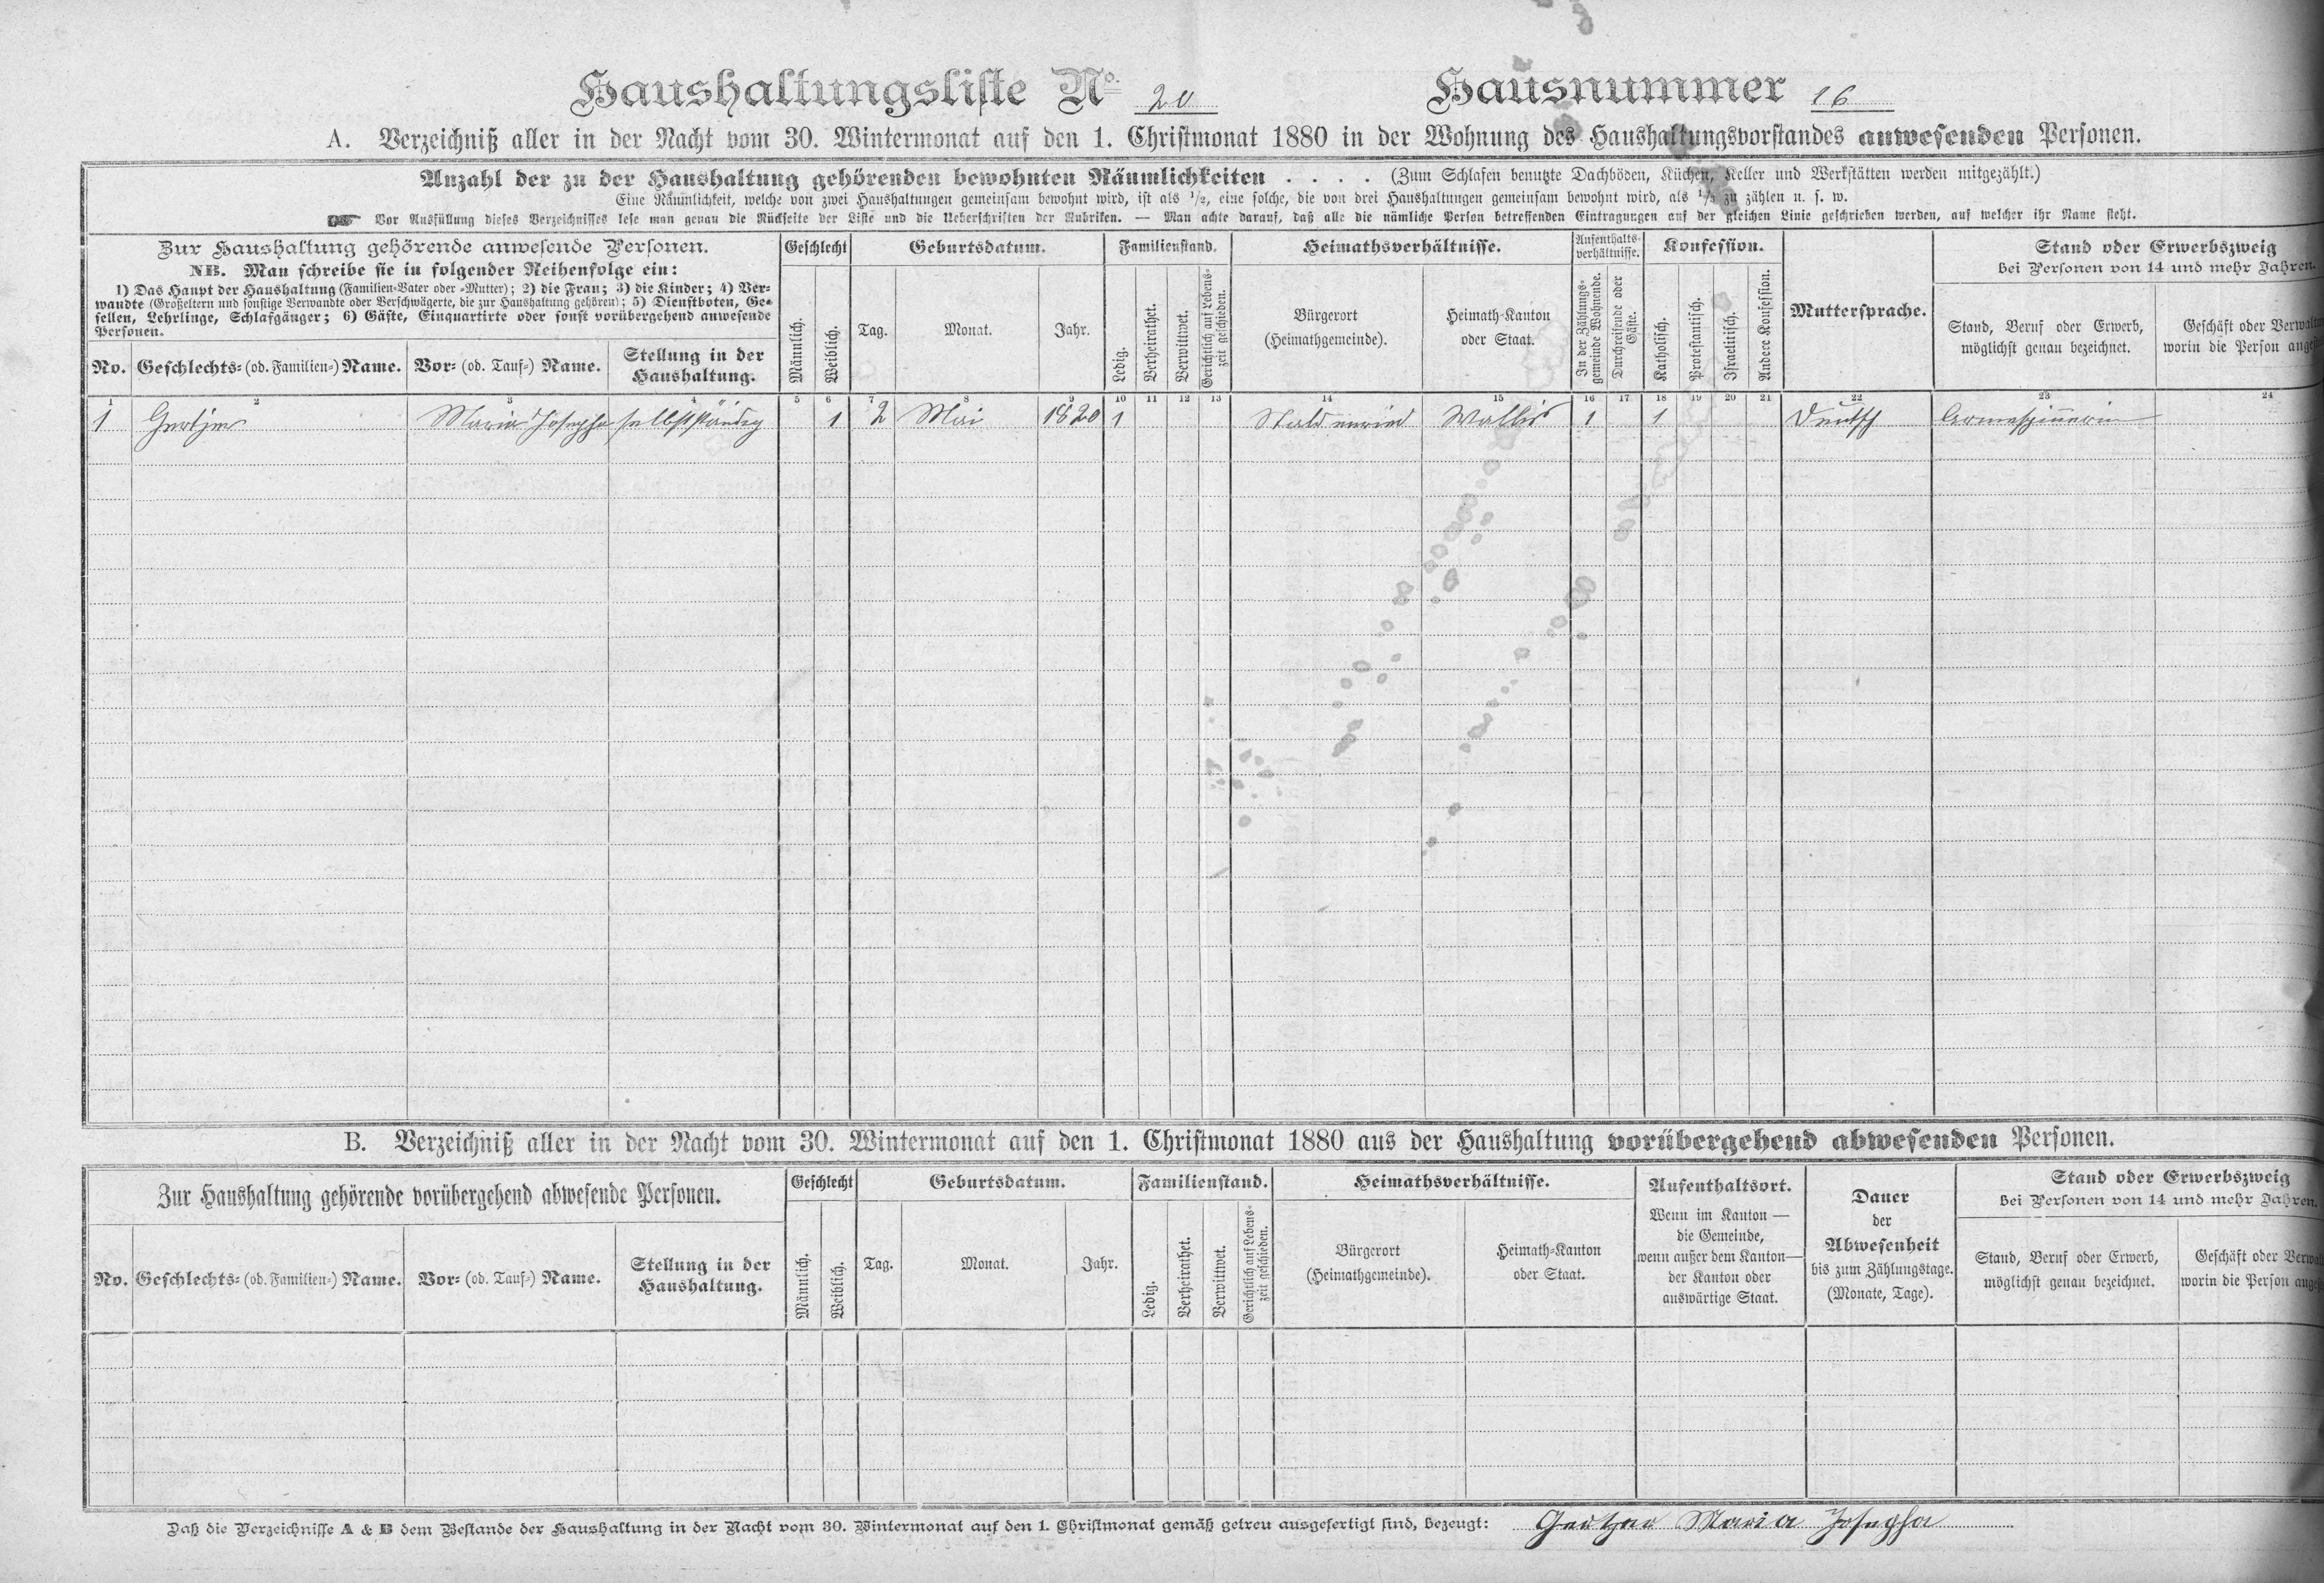 Haushaltungsliste No. 20 Hausnummer 16
A. Verzeichniß aller in der Nacht vom 30. Wintermonat auf den 1. Christmonat 1880 in der Wohnung des Haushaltungsvorstandes anwesenden Personen.
Anzahl der zu der Haushaltung gehörenden bewohnten Räumlichkeiten . . . . (Zum Schlafen benutzte Dachböden, Küchen, Keller und Werkstätten werden mitgezählt.)
Eine Räumlichkeit, welche von zwei Haushaltungen gemeinsam bewohnt wird, ist als 1/2, eine solche, die von drei Haushaltungen gemeinsam bewohnt wird, als 1/3 zu zählen u. s. w.
Vor Ausfüllung dieses Verzeichnisses lese man genau die Rückseite der Liste und die Ueberschriften der Rubriken. — Man achte darauf, daß alle die nämliche Person betreffenden Eintragungen auf der gleichen Linie geschrieben werden, auf welcher ihr Name steht.
Zur Haushaltung gehörende anwesende Personen.
NB. Man schreibe sie in folgender Reihenfolge ein:
1) Das Haupt der Haushaltung (Familien-Vater oder -Mutter); 2) die Frau; 3) die Kinder; 4) Ver-
wandte (Großeltern und sonstige Verwandte oder Verschwägerte, die zur Haushaltung gehören); 5) Dienstboten, Ge-
sellen, Lehrlinge, Schlafgänger; 6) Gäste, Einquartirte oder sonst vorübergehend anwesende
Personen.
No. Geschlechts- (od. Familien-) Name. Vor- (od. Tauf-) Name. Stellung in der
Haushaltung.
Geschlecht
Männlich. Weiblich.
Geburtsdatum.
Tag. Monat. Jahr.
Familienstand.
Ledig. Verheirathet. Verwittwet. Gerichtlich auf Lebens-
zeit geschieden.
Heimathsverhältnisse.
Bürgerort
(Heimathgemeinde).
Heimath-Kanton
oder Staat.
Aufenthalts-
verhältnisse.
In der Zählungs-
gemeinde Wohnende.
Durchreisende oder
Gäste.
Konfession.
Katholisch. Protestantisch. Israelitisch. Andere Konfession.
Muttersprache.
Stand oder Erwerbszweig
bei Personen von 14 und mehr Jahren.
Stand, Beruf oder Erwerb,
möglichst genau bezeichnet.
Geschäft oder
worin die Person
1 2 3 4 5 6 7 8 9 10 11 12 13 14 15 16 17 18 19 20 21 22 23 24
1 Maria Josepha selbstständig 1 2 Mai 1820 1 Staldenried Wallis 1 1 Deutsch
B. Verzeichniß aller in der Nacht vom 30. Wintermonat auf den 1. Christmonat 1880 aus der Haushaltung vorübergehend abwesenden Personen.
Zur Haushaltung gehörende vorübergehend abwesende Personen.
No. Geschlechts- (od. Familien-) Name. Vor- (od. Tauf-) Name. Stellung in der
Haushaltung.
Geschlecht
Männlich. Weiblich.
Geburtsdatum.
Tag. Monat. Jahr.
Familienstand.
Ledig. Verheirathet. Verwittwet. Gerichtlich auf Lebens-
zeit geschieden.
Heimathsverhältnisse.
Bürgerort
(Heimathgemeinde).
Heimath-Kanton
oder Staat.
Aufenthaltsort.
Wenn im Kanton —
die Gemeinde,
wenn außer dem Kanton—
der Kanton oder
auswärtige Staat.
Dauer
der
Abwesenheit
bis zum Zählungstage.
(Monate, Tage).
Stand oder Erwerbszweig
bei Personen von 14 und mehr Jahren.
Stand, Beruf oder Erwerb,
möglichst genau bezeichnet.
Geschäft oder
worin die Person
Daß die Verzeichnisse A & B dem Bestande der Haushaltung in der Nacht vom 30. Wintermonat auf den 1. Christmonat gemäß getreu ausgefertigt sind, bezeugt: Maria Josepha